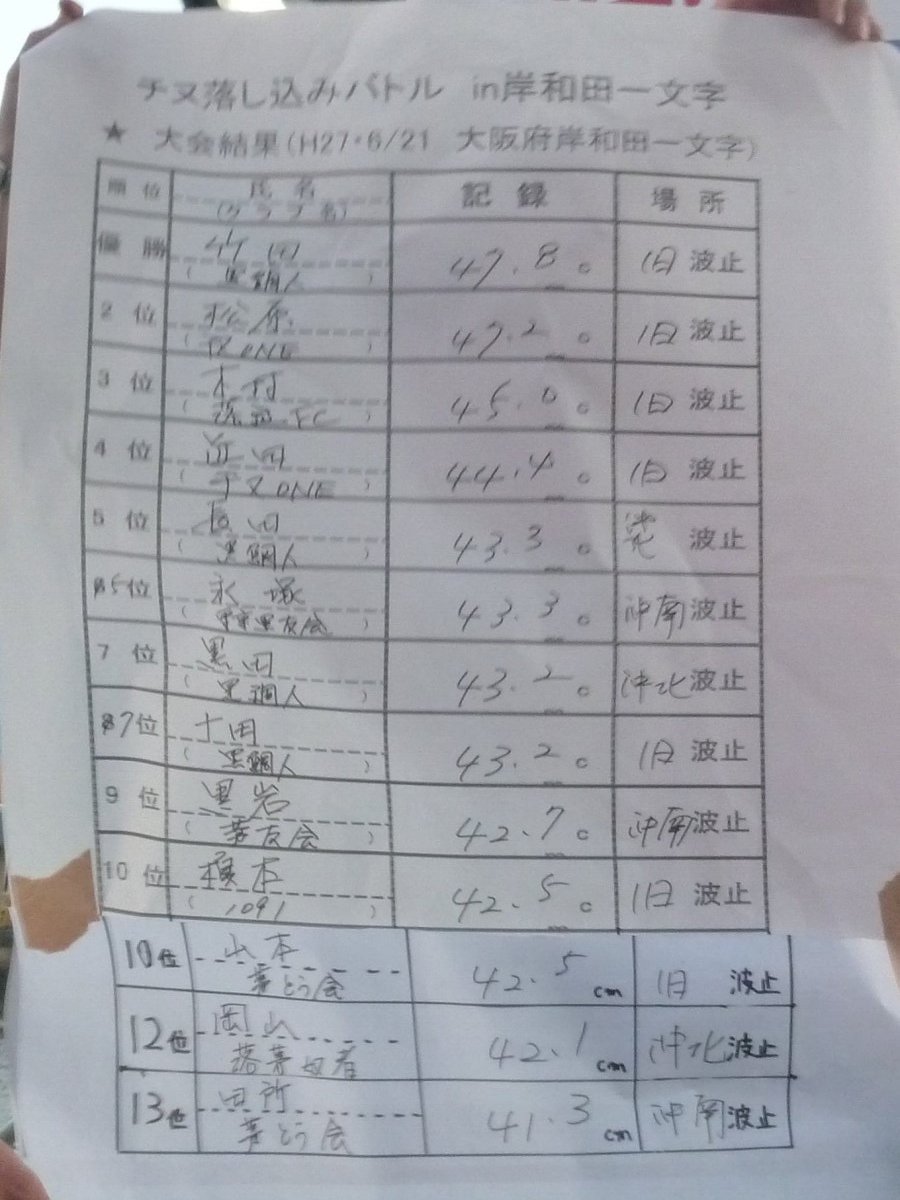 チヌ落し込みバトル in岸和田一文字
★ 大会結果(H27・6/21 大阪府岸和田一文字)
順位 氏名 記録 場所
(クラブ名)
優勝 竹田 47.8 旧 波止
(黒鯛人)
2位 松原 47.2 旧 波止
ONE
3位 木村 45.0 旧 波止
FC
4位 近田 44.4 旧 波止
チヌONE
5位 長田 43.3 波止
(黒鯛人)
5位 永塚 43.3 沖南波止
友会
7位 黒田 43.2 沖北波止
(黒鯛人)
7位 十田 43.2 旧 波止
(黒鯛人)
9位 黒岩 42.7 沖南波止
友会
10位 橋本 42.5 旧 波止
(1091)
10位 山本 42.5 cm 旧 波止
とう会
12位 岡山 42.1 cm 沖北波止
13位 田所 41.3 cm 沖南波止
とう会